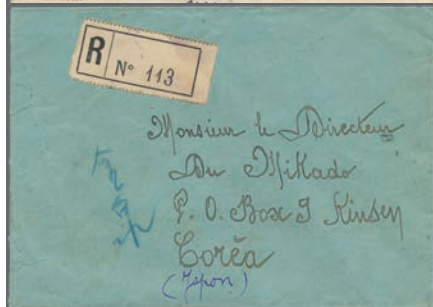 R
N° 113
Monsieur le Directeur
Du Mikado
P. O. Box 9 Kinsen
Corêa
(Japon)